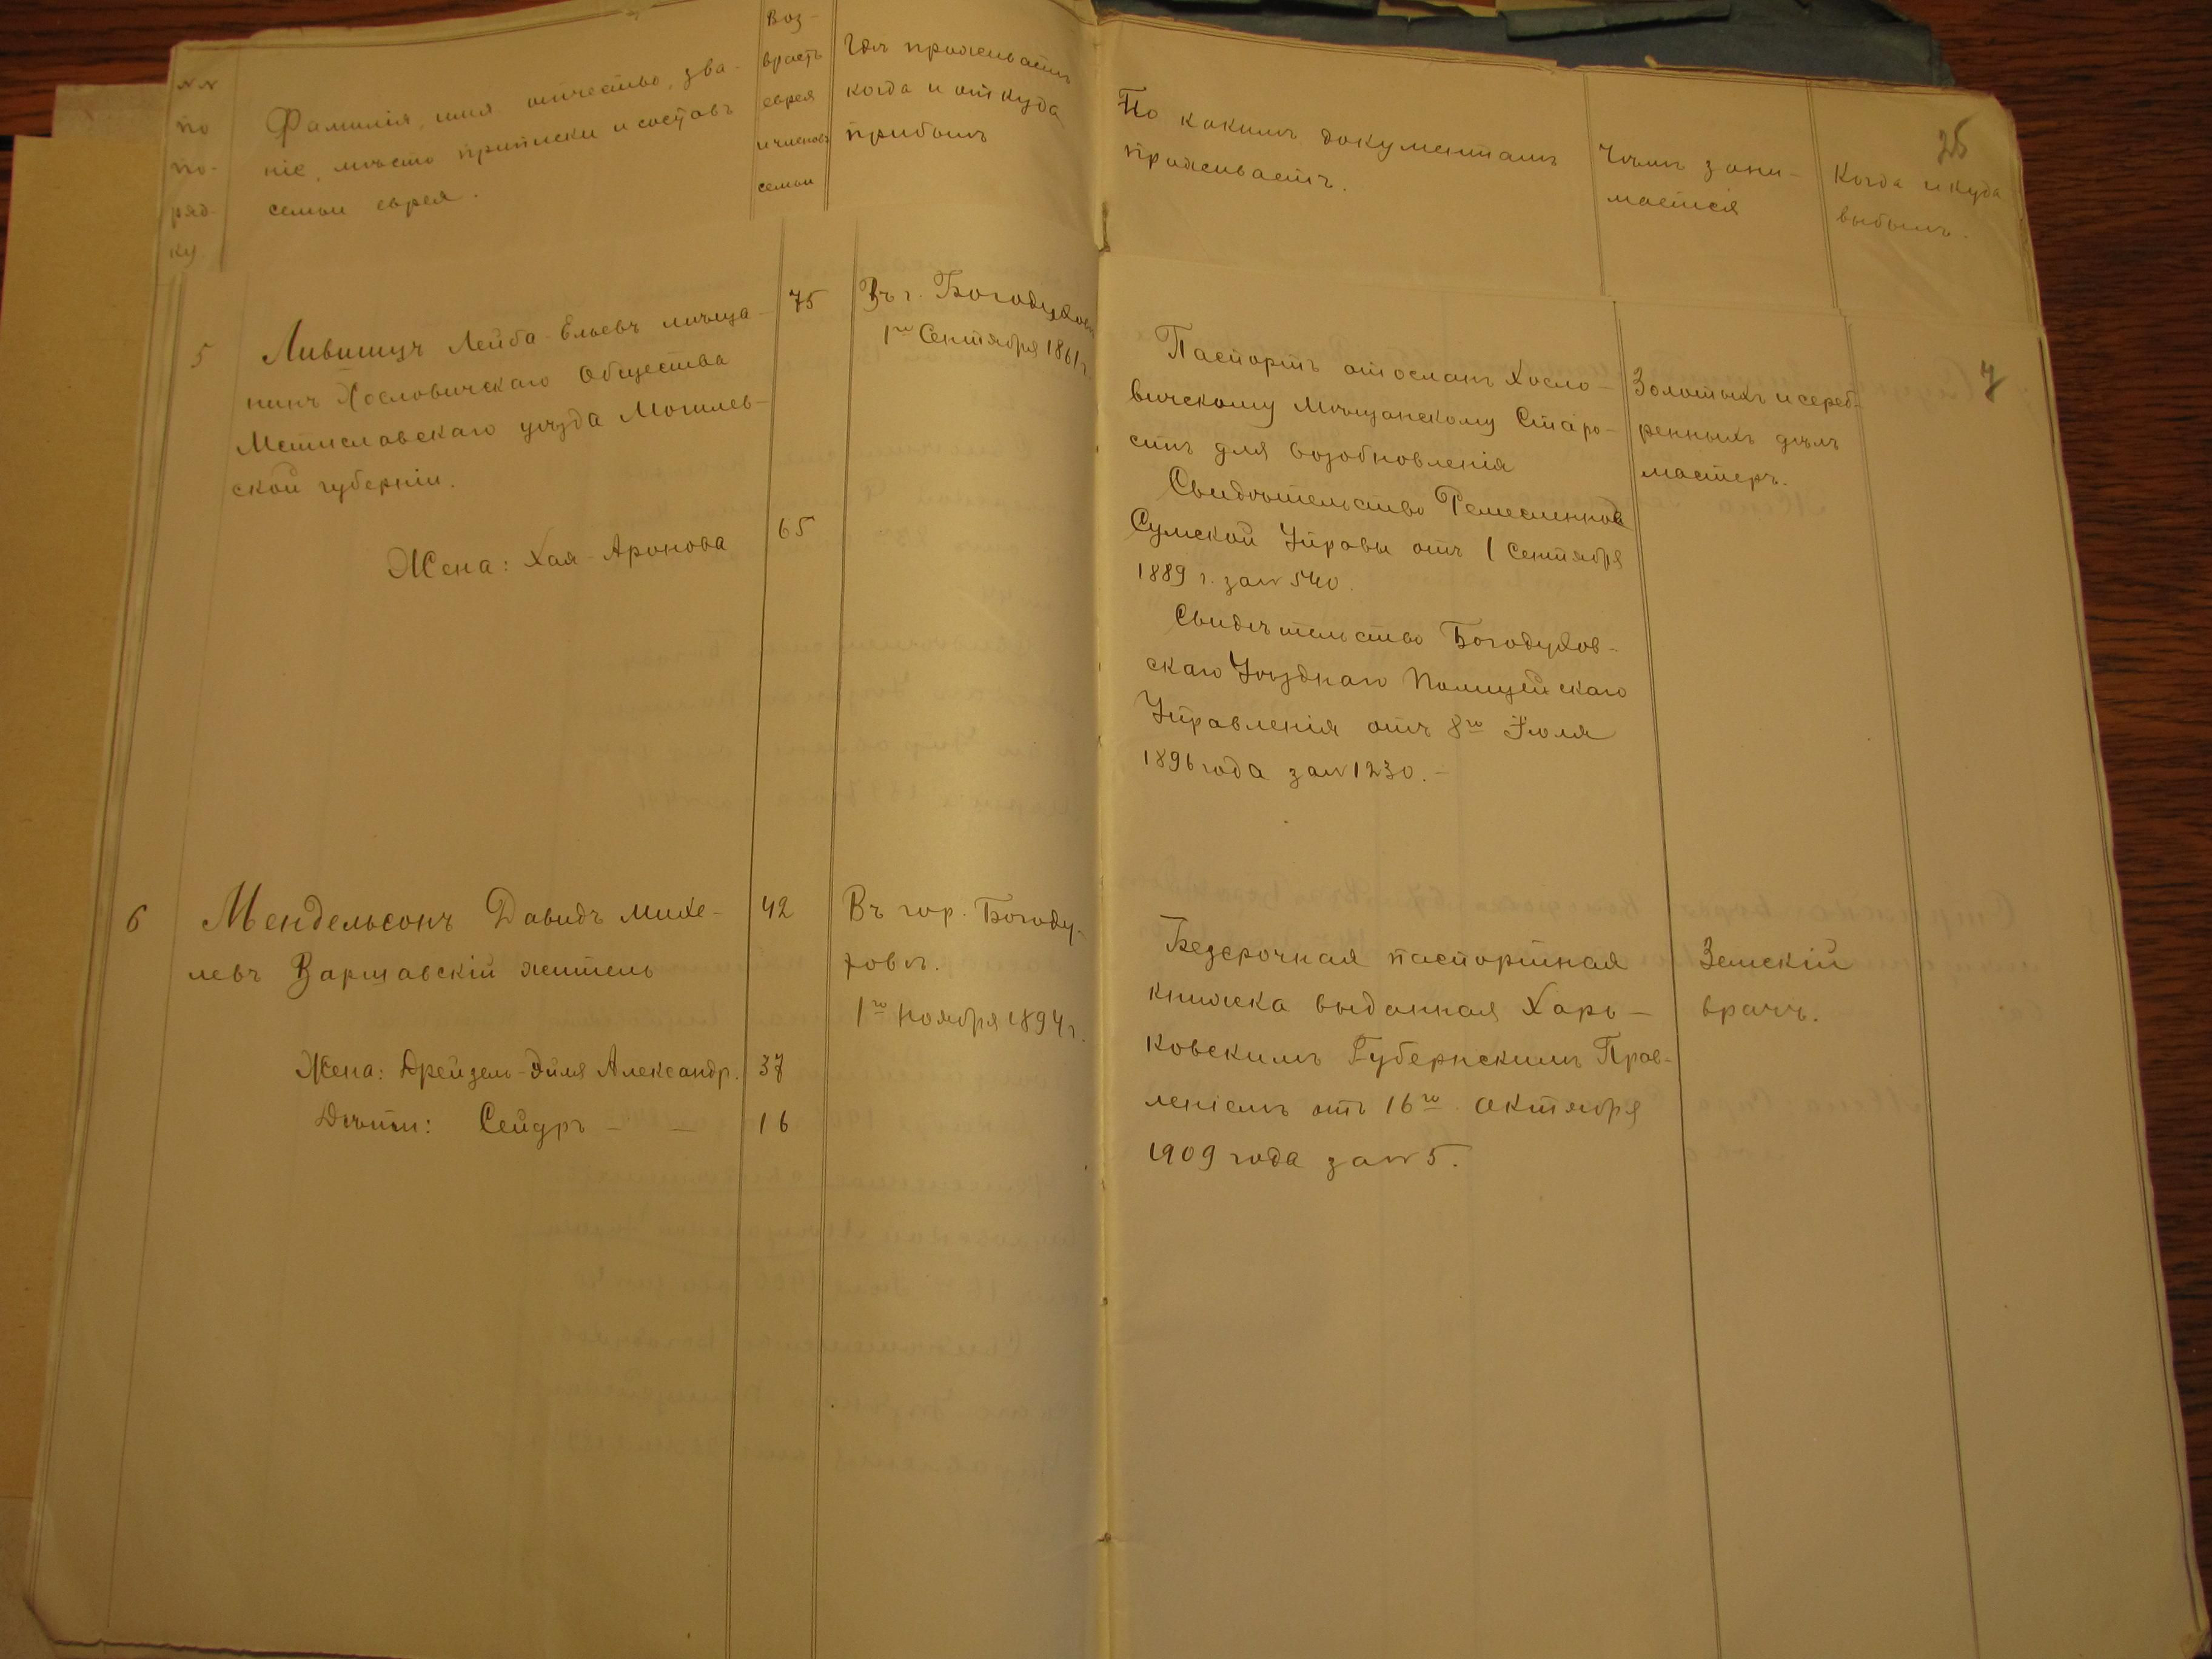 25
№№
по
по-
ряд-
ку.
Фамилія, имя отчество, зва-
ніе, мѣсто приписки и составъ
семьи еврея.
Воз-
врастъ
еврея
и членовъ
семьи
Гдѣ проживаетъ
когда и откуда
прибылъ
По какимъ документамъ
проживаетъ.
Чѣмъ зани-
мается
Когда и куда
выбылъ.
5
Лившицъ Лейба Ельевъ мѣща-
нинъ Хословичскаго Общества
Мстиславскаго уѣзда Могилев-
ской губерніи.
Жена: Хая-Аронова
75
65
Въ г. Богодуховѣ
1го Сентября 1861 г.
Паспортъ отосланъ Хосло-
вичскому Мѣщанскому Старо-
стѣ для возобновленія
Свидѣтельство Ремесленной
Сумской Управы отъ 1 Сентября
1889 г. за № 540.
Свидѣтельство Богодухов-
скаго Уѣзднаго Полицейскаго
Управленія отъ 8го Іюля
1896 года за № 1230. –
Золотыхъ и сереб-
ренныхъ дѣлъ
мастеръ.
7
6
Мендельсонъ Давидъ Михе-
левъ Варшавскій житель
Жена: Дрейзель-Эйля Александр.
Дѣти: Сейдръ – –
42
37
16
Въ гор. Богоду-
ховѣ.
1го Ноября 1894 г.
Безсрочная паспортная
книжка выданная Харь-
ковскимъ Губернскимъ Прав-
леніемъ отъ 16го Октября
1909 года за № 5.
Земскій
врачъ.